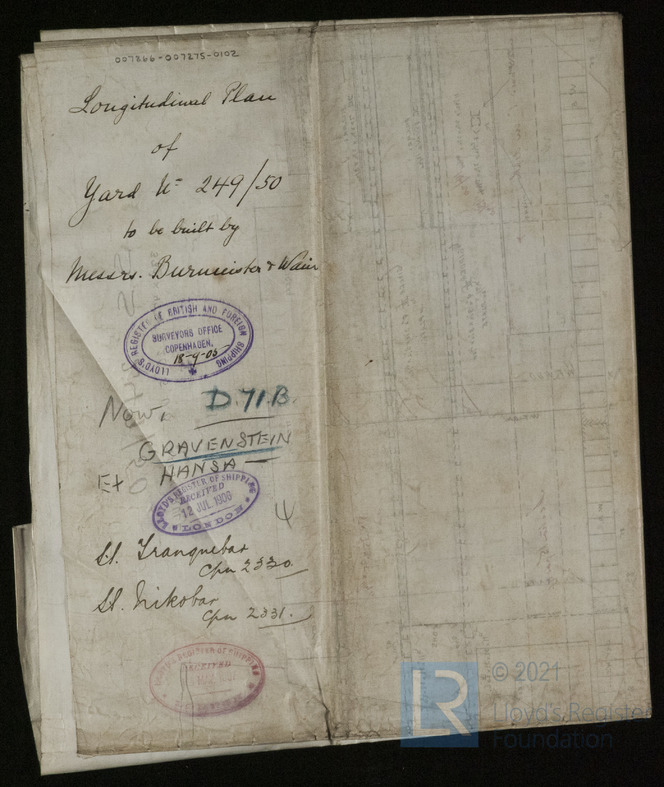 Longitudinal Plan
of
Yard No 249/50
to be built by
Messrs. Burmeister & Wain
LLOYD'S REGISTER OF BRITISH AND FOREIGN SHIPPING
SURVEYORS OFFICE
COPENHAGEN.
Now, D.71.B.
GRAVENSTEIN
Ex HANSA
LLOYD'S REGISTER OF SHIPPING
RECEIVED
12 JUL 1906
LONDON
St. Tranquebar
Cpn 2330
St. Nikobar
Cpn 2331.
LLOYD'S REGISTER OF SHIPPING
RECEIVED
LR
© 2021
Lloyd's Register
Foundation